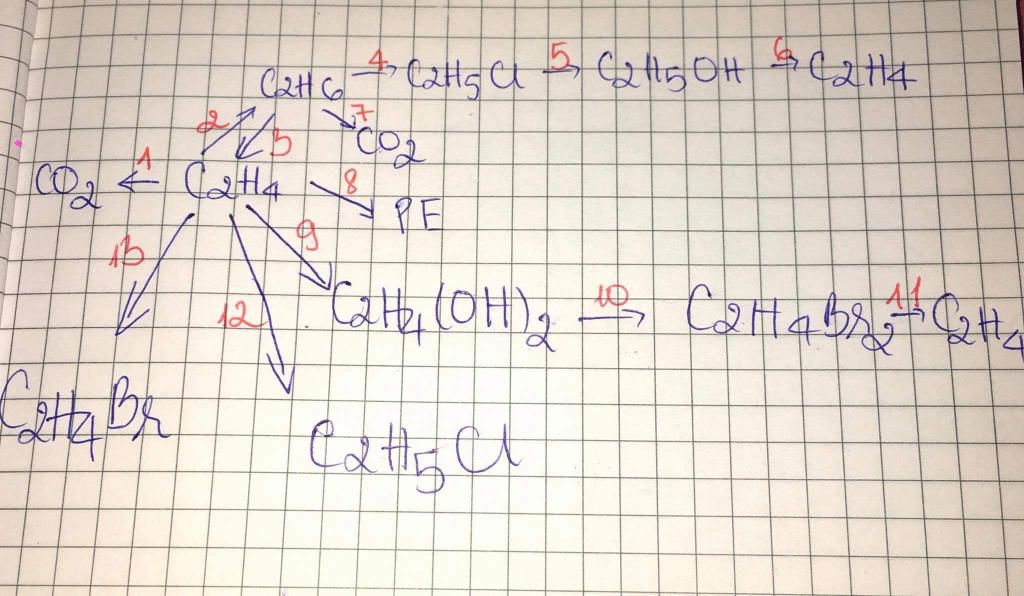 C2H6 →4 C2H5Cl →5 C2H5OH →6 C2H4
2 3 7
CO2
CO2 ←1 C2H4 8
PE
13 9
12 C2H4(OH)2 →10 C2H4Br2 →11 C2H4
C2H4Br
C2H5Cl